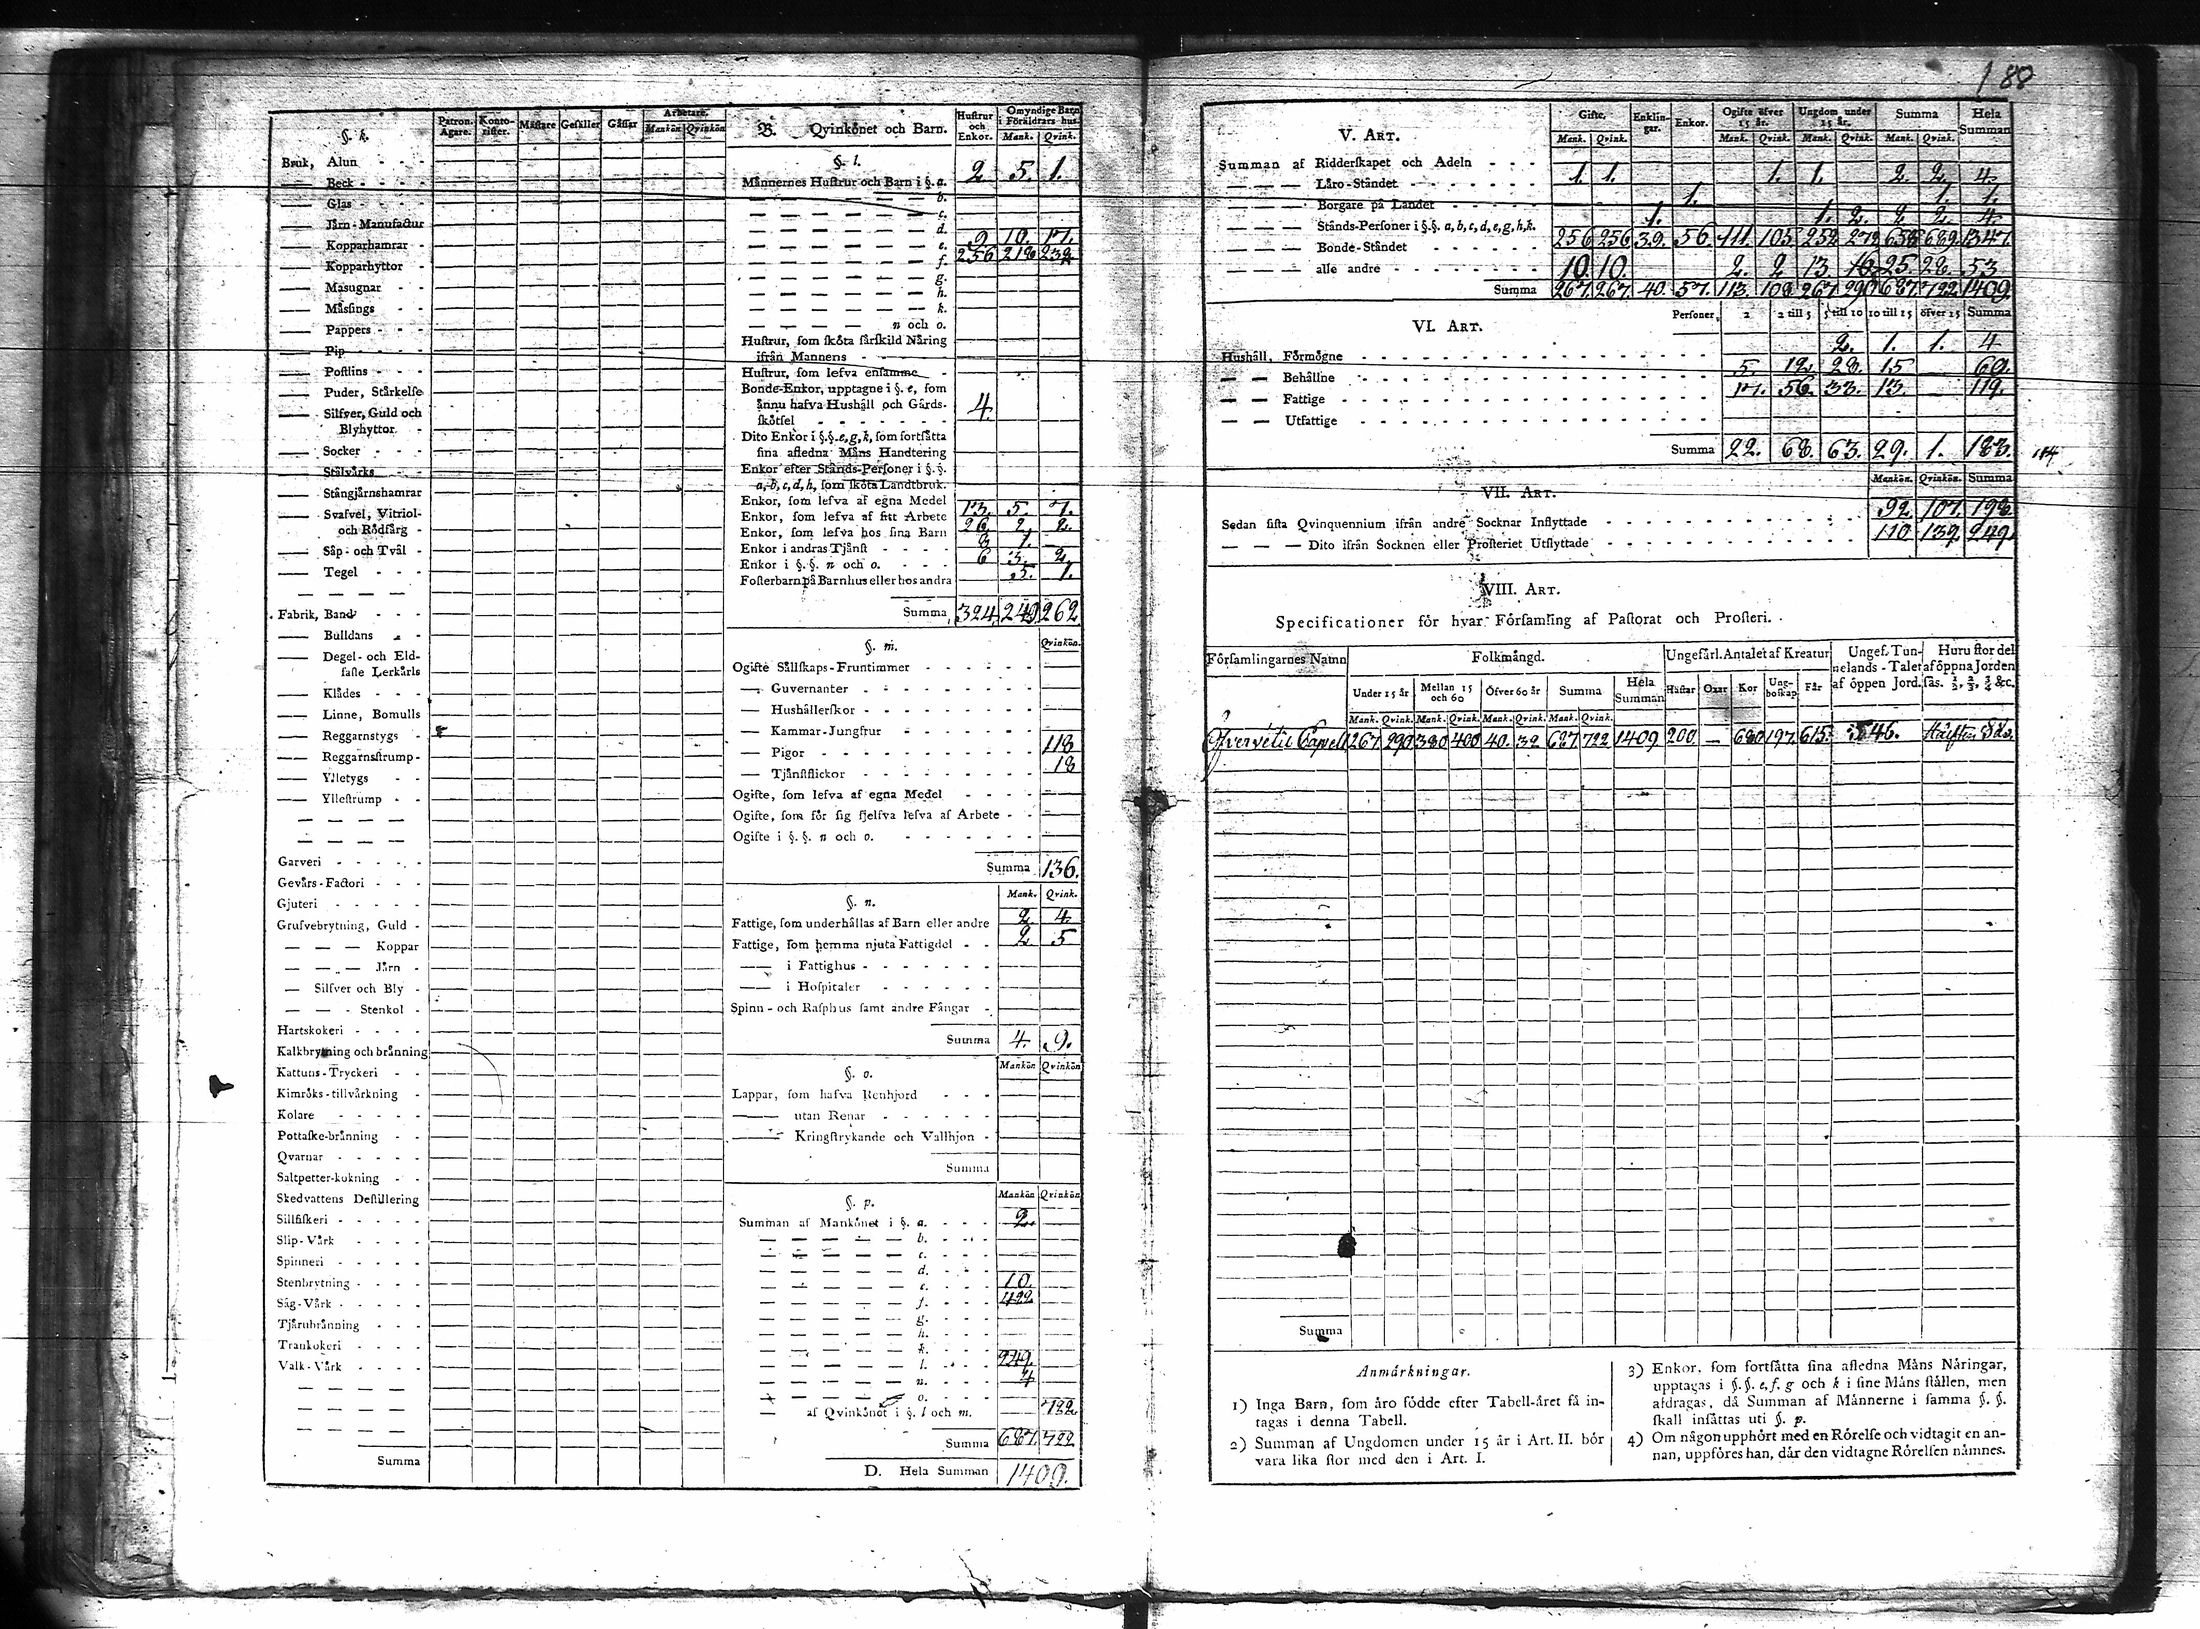 188
§. k.
Patron. Ägare.
Konto- rister.
Mästare
Gesäller
Gåssar
Arbetare.
Mankön Qvinkön
Bruk, Alun
Beck
Glas
Järn-Manufactur
Kopparhamrar
Kopparhyttor
Masugnar
Måssings
Pappers
Pip
Postlins
Puder, Stärkelse
Silfver, Guld och
Blyhyttor
Socker
Stålvårks
Stångjårnshamrar
Svafvel, Vitriol-
och Rödfärg
Såp- och Tvål
Tegel
Fabrik, Band
Bulldans
Degel- och Eld-
faste Lerkärls
Klådes
Linne, Bomulls
Reggarnstygs
Reggarnsstrump
Ylletygs
Yllestrump
Garveri
Gevårs-Factori
Gjuteri
Grufvebrytning, Guld
Koppar
Jårn
Silfver och Bly
Stenkol
Hartskokeri
Kalkbrytning och bränning
Kattuns-Tryckeri
Kimröks-tillvårkning
Kolare
Pottaske-bränning
Qvarnar
Saltpetter-kokning
Skedvattens Destillering
Sillfiskeri
Slip-Vårk
Spinneri
Stenbrytning
Såg-Vårk
Tjärubrånning
Trankokeri
Valk-Vårk
Summa
B. Qvinkönet och Barn.
Hustrur och Enkor.
Omyndige Barn i Föräldrars hus.
Mank. Qvink.
§. l.
Männernes Hustrur och Barn i §. a. 2. 5. 1.
b.
c.
d.
e. 9 10 17.
f. 256 218 232
g.
h.
k.
n och o.
Hustrur, som sköta särskild Näring
ifrån Mannens
Hustrur, som lefva ensamme
Bonde-Enkor, upptagne i §. e, som
ännu hafva Hushåll och Gårds-
skötsel 4.
Dito Enkor i §.§. e, g, k, som fortsätta
sina afledna Mäns Handtering
Enkor efter Stånds-Personer i §.§.
a, b, c, d, h, som sköta Landtbruk.
Enkor, som lefva af egna Medel 13. 5. 7.
Enkor, som lefva af sitt Arbete 26 2. 2.
Enkor, som lefva hos sina Barn 8 1.
Enkor i andras Tjänst 6 3. 2
Enkor i §.§. n och o.
Fosterbarn på Barnhus eller hos andra 5. 1.
Summa 324 249 262
§. m. Qvinkön.
Ogifte Sällskaps-Fruntimmer
Guvernanter
Hushållerskor
Kammar-Jungfrur
Pigor 118
Tjänstflickor 18
Ogifte, som lefva af egna Medel
Ogifte, som för sig sjelfva lefva af Arbete
Ogifte i §.§. n och o.
Summa 136.
§. n. Mank. Qvink.
Fattige, som underhållas af Barn eller andre 2 4.
Fattige, som hemma njuta Fattigdel 2 5
i Fattighus
i Hospitaler
Spinn- och Rasphus samt andre Fångar
Summa 4. 9.
§. o. Mankön Qvinkön
Lappar, som hafva Renhjord
utan Renar
Kringstrykande och Vallhjon
Summa
§. p. Mankön Qvinkön
Summan af Mankönet i §. a. 2.
b.
c.
d.
e. 10.
f. 422
g.
h.
k.
l. 249.
n. 4
o.
af Qvinkönet i §. l och m. 722
Summa 687. 722
D. Hela Summan 1409.
V. ART.
Gifte.
Enklin- gar.
Enkor.
Ogifte öfver 15 år.
Ungdom under 15 år.
Summa
Hela Summan
Mank. Qvink. Mank. Qvink. Mank. Qvink. Mank. Qvink.
Summan af Ridderskapet och Adeln
Låro-Ståndet 1. 1. 1. 1. 2. 2. 4.
Borgare på Landet 1. 1. 1.
Stånds-Personer i §.§. a, b, c, d, e, g, h, k. 1. 1. 2. 2 2. 4
Bonde-Ståndet 256 256 39. 56 111. 105. 252 272 658 689 1347.
alle andre 10. 10. 2. 2 13. 16 25. 28. 53
Summa 267. 267. 40. 57. 113. 108 267 290 687. 722 1409.
VI. ART.
Personer. 2 2 till 5 5 till 10 10 till 15 öfver 15 Summa
Hushåll, Förmögne 2. 1. 1. 4
Behållne 5. 12. 28. 15 60.
Fattige 17. 56. 33. 13. 119.
Utfattige
Summa 22. 68. 63. 29. 1. 183.
VII. ART.
Mankön. Qvinkön. Summa
Sedan sista Qvinquennium ifrån andre Socknar Inflyttade 92. 107.
Dito ifrån Socknen eller Prosteriet Utflyttade 110 139. 249.
VIII. ART.
Specificationer för hvar Församling af Pastorat och Prosteri.
Församlingarnes Namn
Folkmängd.
Ungefärl. Antalet af Kreatur
Ungef. Tun-
nelands-Talet
af öppen Jord.
Huru stor del
af öppna Jorden
sås. ½, ⅔, ¾ &c.
Under 15 år
Mellan 15 och 60
Öfver 60 år
Summa
Hela Summan
Hästar
Oxar
Kor
Ung- boskap
Får
Mank. Qvink. Mank. Qvink. Mank. Qvink. Mank. Qvink.
Capell 267. 290 380 400 40. 32 687. 722 1409 200 — 680 197. 615. 546.
Summa
Anmärkningar.
1) Inga Barn, som äro födde efter Tabell-året få in-
tagas i denna Tabell.
2) Summan af Ungdomen under 15 år i Art. II. bör
vara lika stor med den i Art. I.
3) Enkor, som fortsätta sina afledna Mäns Näringar,
upptagas i §.§. e, f, g och k i sine Mäns ställen, men
afdragas, då Summan af Männerne i samma §. §.
skall insättas uti §. p.
4) Om någon upphört med en Rörelse och vidtagit en an-
nan, uppföres han, där den vidtagne Rörelsen nämnes.